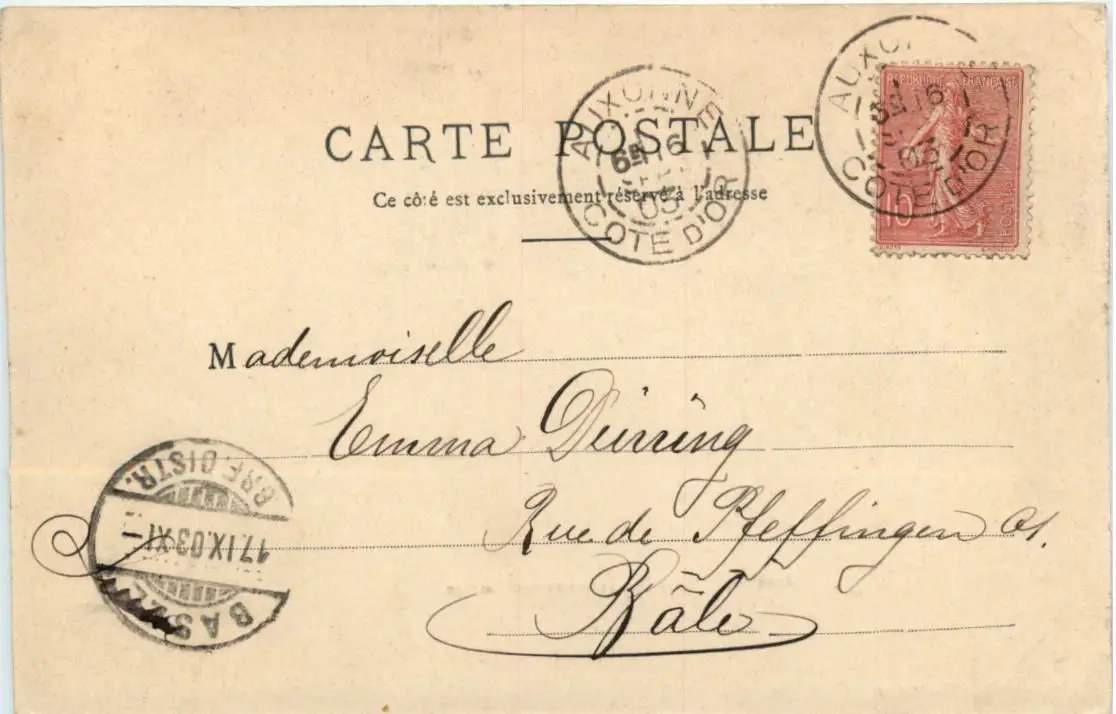 CARTE POSTALE
Ce côté est exclusivement réservé à l'adresse
AUXONNE
6E 16
03
COTE D'OR
AUXO
3E 16
03
COTE D'OR
REPUBLIQUE FRANÇAISE
10
POSTES
Mademoiselle
Emma Dürring
Rue de Pfeffingen 61.
Bâle
BASEL
17.IX.03 XI
BRF. DISTR.